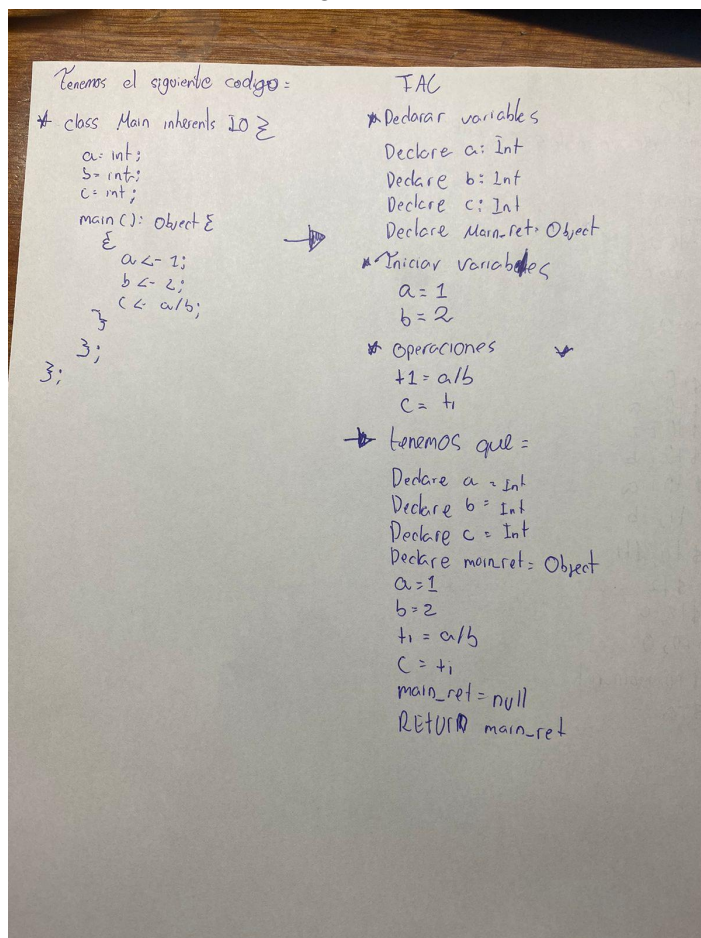 Tenemos el siguiente codigo:
* class Main inherents IO {
a: int;
b: int;
c: int;
main(): Object {
{
a <- 1;
b <- 2;
c <- a/b;
}
};
};
TAC
* Declarar variables
Declare a: Int
Declare b: Int
Declare c: Int
Declare Main_ret: Object
* Iniciar variables
a = 1
b = 2
* operaciones
t1 = a/b
c = t1
tenemos que:
Declare a : Int
Declare b : Int
Declare c : Int
Declare main_ret: Object
a = 1
b = 2
t1 = a/b
c = t1
main_ret = null
RETURN main_ret